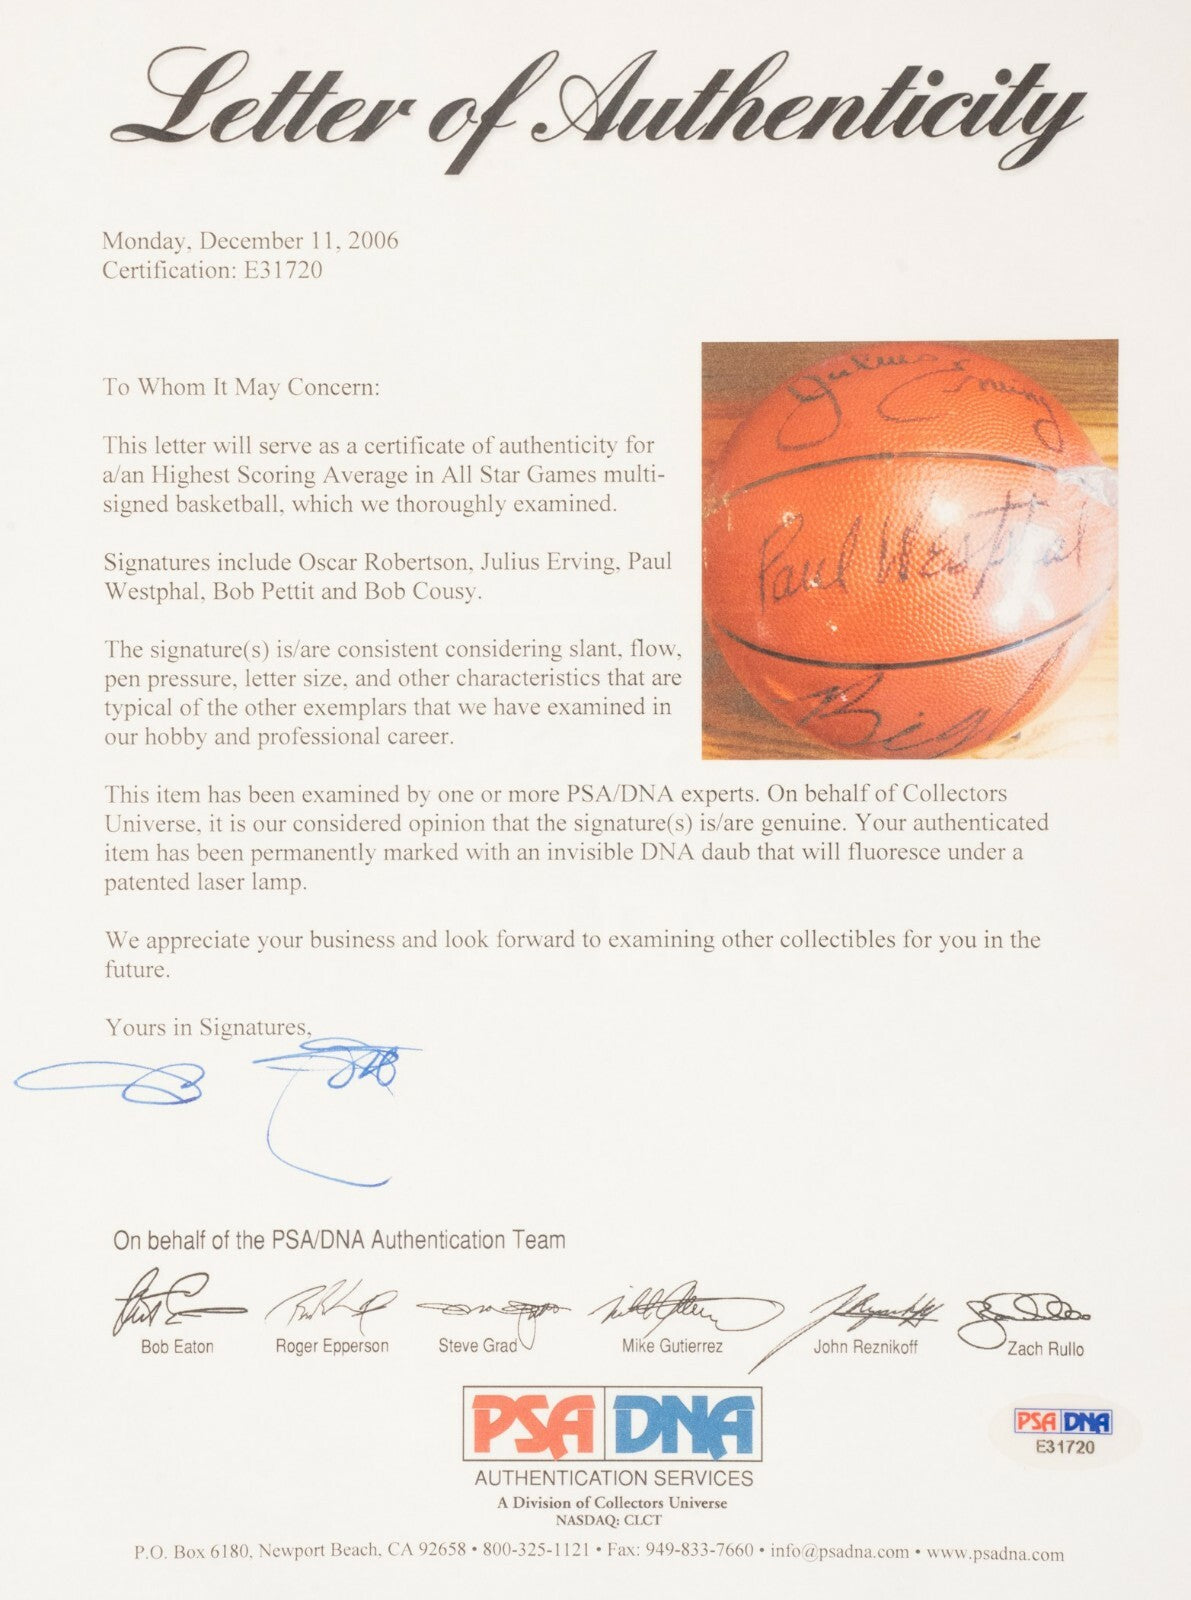 Letter of Authenticity
Monday, December 11, 2006
Certification: E31720
To Whom It May Concern:
This letter will serve as a certificate of authenticity for
a/an Highest Scoring Average in All Star Games multi-
signed basketball, which we thoroughly examined.
Signatures include Oscar Robertson, Julius Erving, Paul
Westphal, Bob Pettit and Bob Cousy.
The signature(s) is/are consistent considering slant, flow,
pen pressure, letter size, and other characteristics that are
typical of the other exemplars that we have examined in
our hobby and professional career.
Julius Erving
Paul Westphal
This item has been examined by one or more PSA/DNA experts. On behalf of Collectors
Universe, it is our considered opinion that the signature(s) is/are genuine. Your authenticated
item has been permanently marked with an invisible DNA daub that will fluoresce under a
patented laser lamp.
We appreciate your business and look forward to examining other collectibles for you in the
future.
Yours in Signatures,
On behalf of the PSA/DNA Authentication Team
Bob Eaton Roger Epperson Steve Grad Mike Gutierrez John Reznikoff Zach Rullo
PSA DNA
AUTHENTICATION SERVICES
A Division of Collectors Universe
NASDAQ: CLCT
PSA DNA
E31720
P.O. Box 6180, Newport Beach, CA 92658 • 800-325-1121 • Fax: 949-833-7660 • info@psadna.com • www.psadna.com